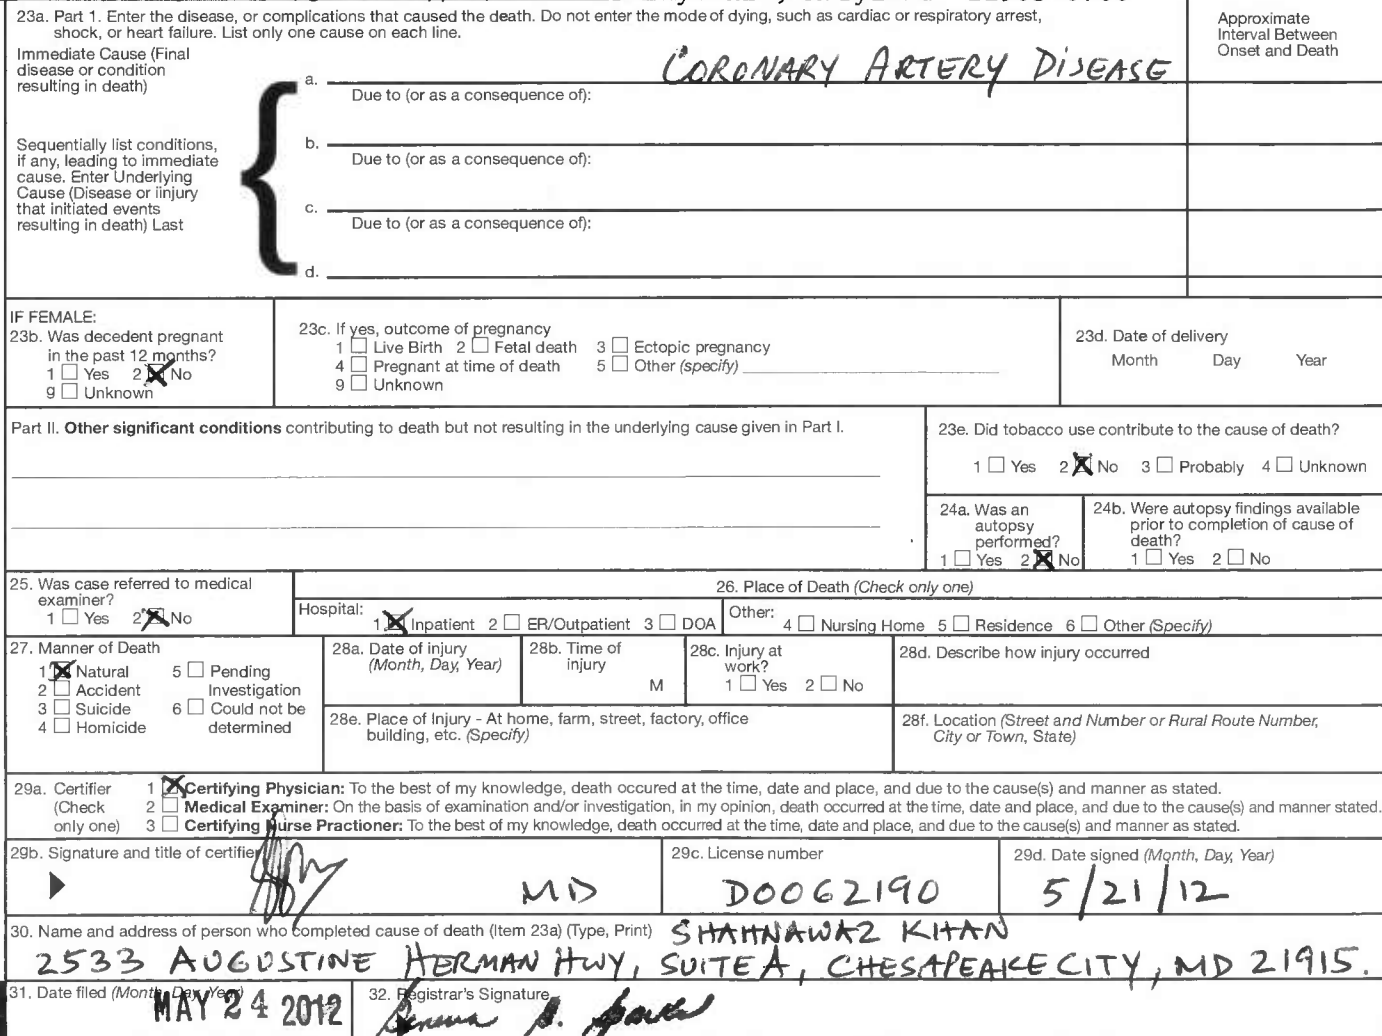 23a. Part 1. Enter the disease, or complications that caused the death. Do not enter the mode of dying, such as cardiac or respiratory arrest,
shock, or heart failure. List only one cause on each line.
Approximate
Interval Between
Onset and Death
Immediate Cause (Final
disease or condition
resulting in death)
a. CORONARY ARTERY DISEASE
Due to (or as a consequence of):
Sequentially list conditions,
if any, leading to immediate
cause. Enter Underlying
Cause (Disease or iinjury
that initiated events
resulting in death) Last
b.
Due to (or as a consequence of):
c.
Due to (or as a consequence of):
d.
IF FEMALE:
23b. Was decedent pregnant
in the past 12 months?
1 ☐ Yes 2 ☒ No
9 ☐ Unknown
23c. If yes, outcome of pregnancy
1 ☐ Live Birth 2 ☐ Fetal death 3 ☐ Ectopic pregnancy
4 ☐ Pregnant at time of death 5 ☐ Other (specify)
9 ☐ Unknown
23d. Date of delivery
Month Day Year
Part II. Other significant conditions contributing to death but not resulting in the underlying cause given in Part I.
23e. Did tobacco use contribute to the cause of death?
1 ☐ Yes 2 ☒ No 3 ☐ Probably 4 ☐ Unknown
24a. Was an
autopsy
performed?
1 ☐ Yes 2 ☒ No
24b. Were autopsy findings available
prior to completion of cause of
death?
1 ☐ Yes 2 ☐ No
25. Was case referred to medical
examiner?
1 ☐ Yes 2 ☒ No
26. Place of Death (Check only one)
Hospital: 1 ☒ Inpatient 2 ☐ ER/Outpatient 3 ☐ DOA
Other: 4 ☐ Nursing Home 5 ☐ Residence 6 ☐ Other (Specify)
27. Manner of Death
1 ☒ Natural 5 ☐ Pending
2 ☐ Accident Investigation
3 ☐ Suicide 6 ☐ Could not be
4 ☐ Homicide determined
28a. Date of injury
(Month, Day, Year)
28b. Time of
injury
M
28c. Injury at
work?
1 ☐ Yes 2 ☐ No
28d. Describe how injury occurred
28e. Place of Injury - At home, farm, street, factory, office
building, etc. (Specify)
28f. Location (Street and Number or Rural Route Number,
City or Town, State)
29a. Certifier
(Check
only one)
1 ☒ Certifying Physician: To the best of my knowledge, death occured at the time, date and place, and due to the cause(s) and manner as stated.
2 ☐ Medical Examiner: On the basis of examination and/or investigation, in my opinion, death occurred at the time, date and place, and due to the cause(s) and manner stated.
3 ☐ Certifying Nurse Practioner: To the best of my knowledge, death occurred at the time, date and place, and due to the cause(s) and manner as stated.
29b. Signature and title of certifier
MD
29c. License number
D0062190
29d. Date signed (Month, Day, Year)
5/21/12
30. Name and address of person who completed cause of death (Item 23a) (Type, Print) SHAHNAWAZ KHAN
2533 AUGUSTINE HERMAN HWY, SUITE A, CHESAPEAKE CITY, MD 21915.
31. Date filed (Month, Day, Year)
MAY 24 2012
32. Registrar's Signature